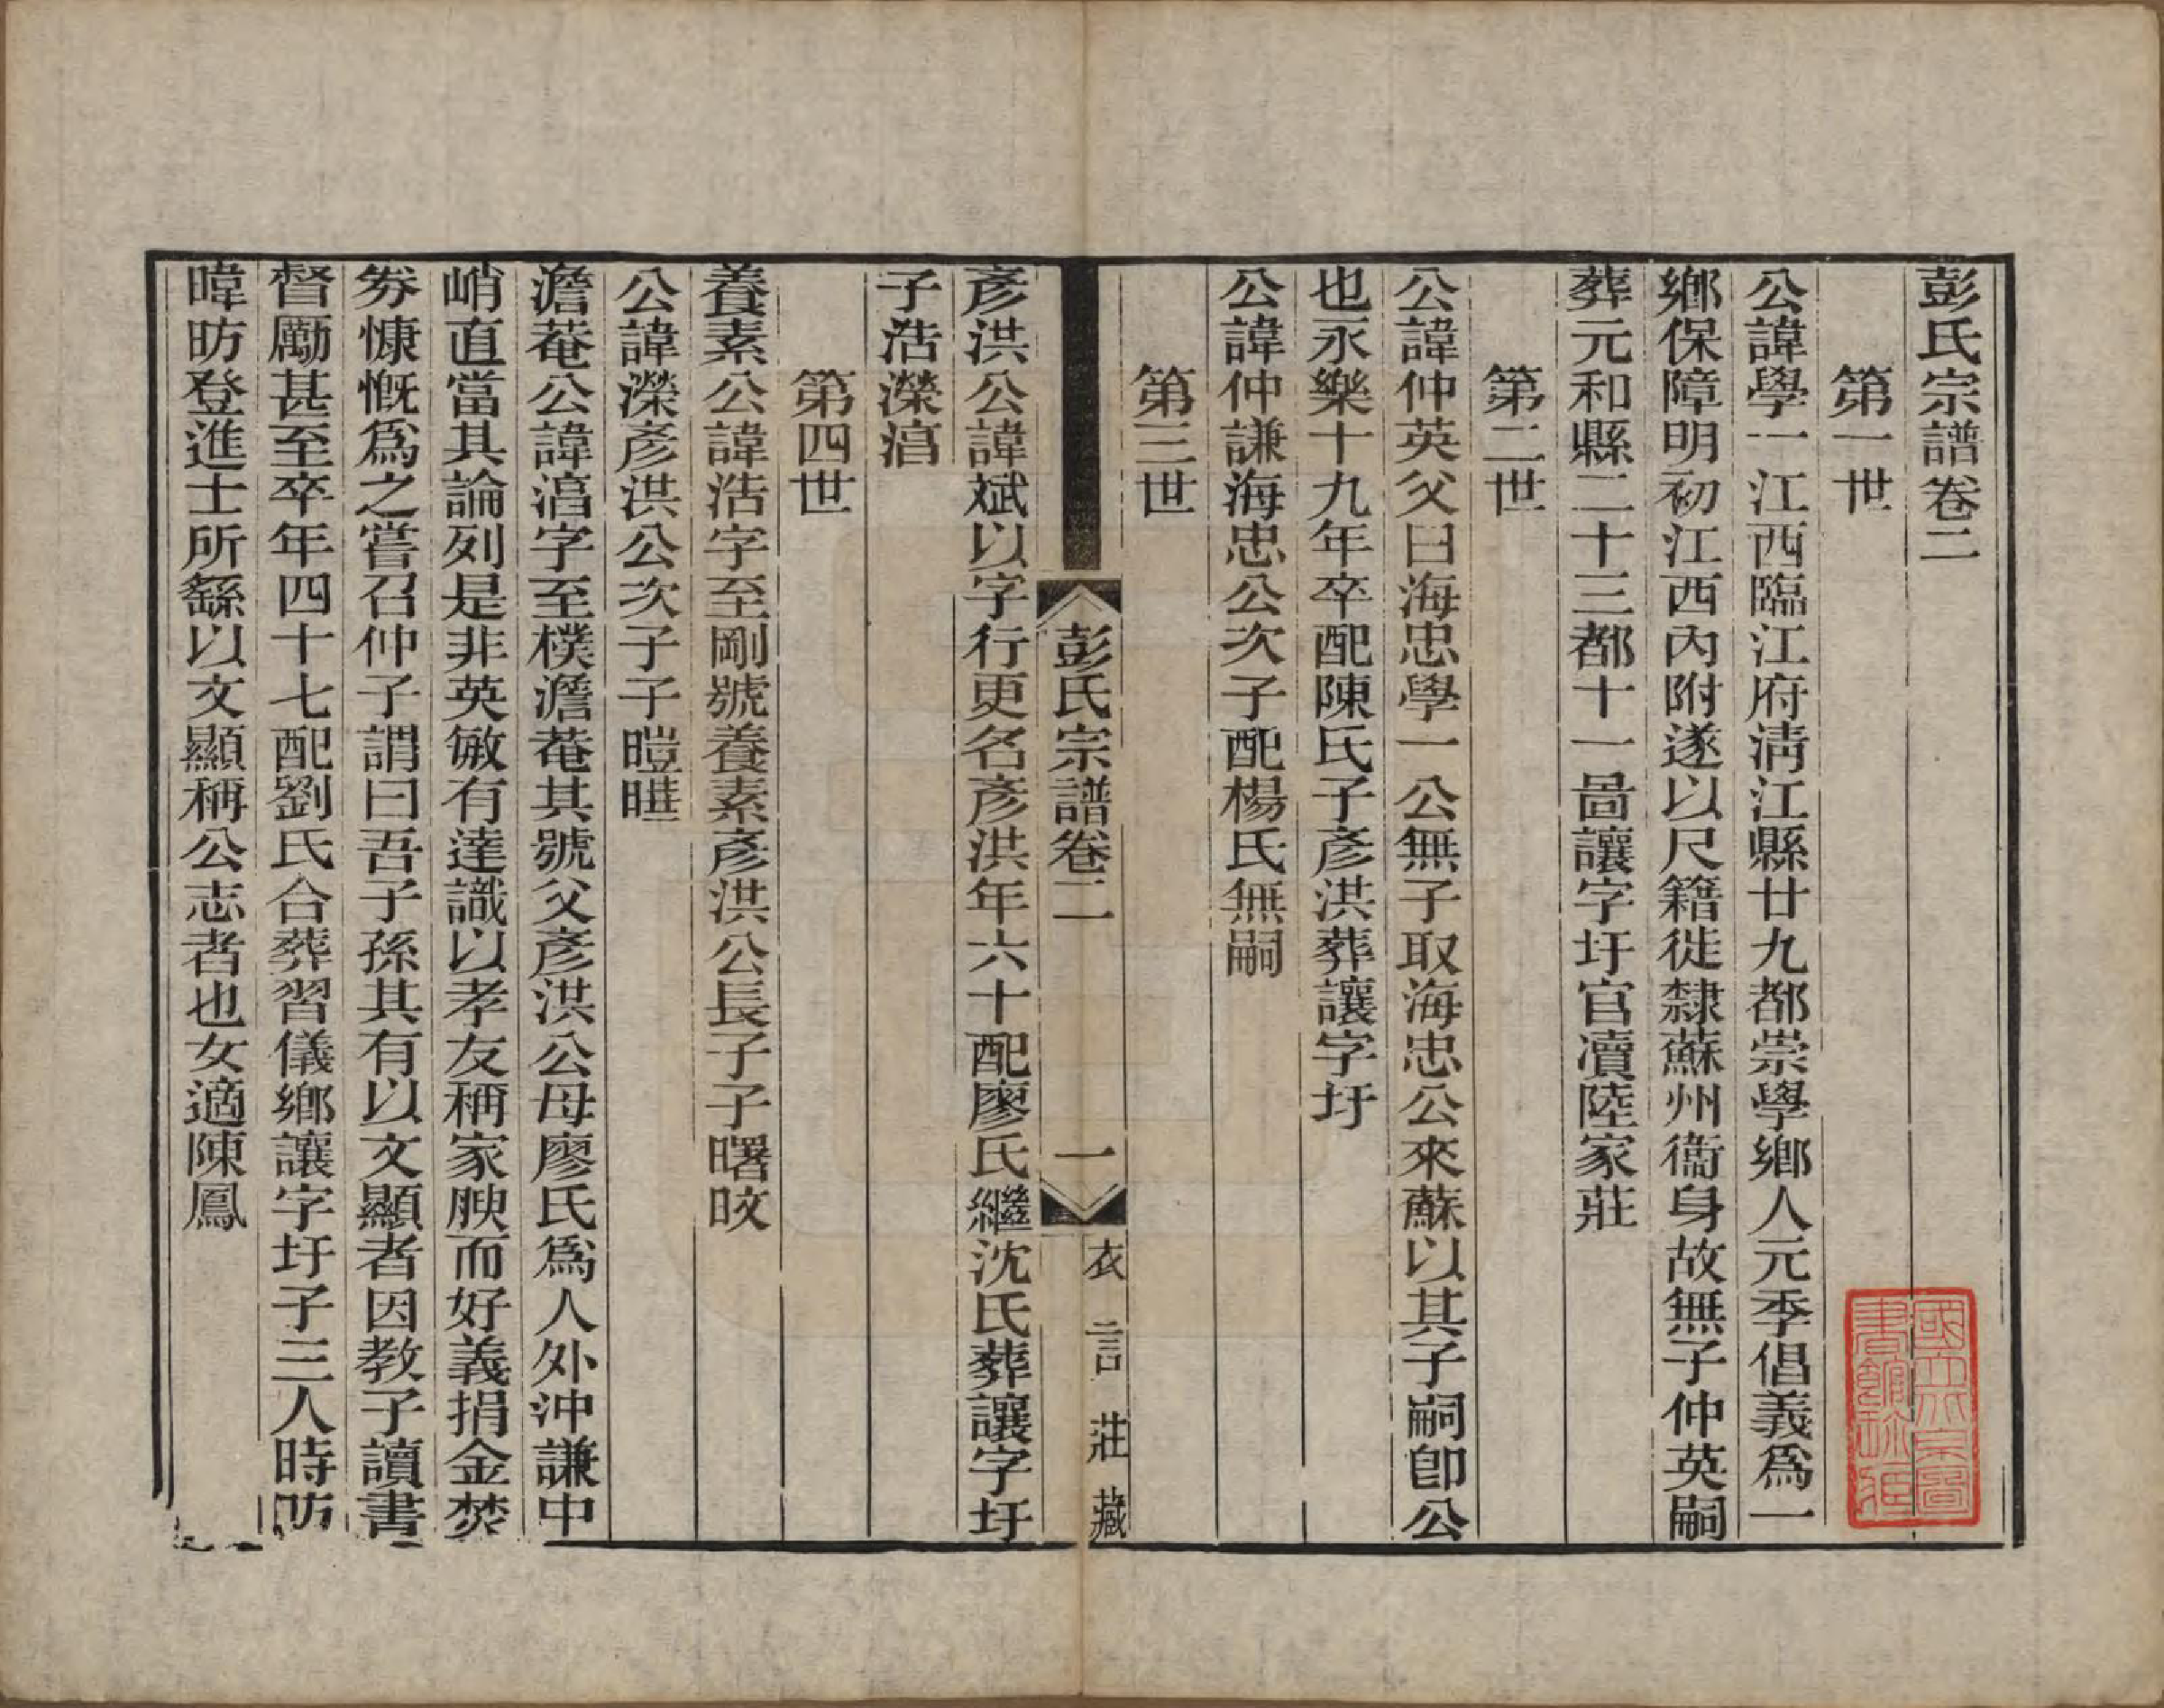 彭氏宗譜卷二
第一世
公諱學一江西臨江府清江縣廿九都崇學鄉人元季倡義爲一
鄉保障明初江西內附遂以尺籍徙隸蘇州衞身故無子仲英嗣
葬元和縣二十三都十一啚讓字圩官瀆陸家莊
第二世
公諱仲英父曰海忠學一公無子取海忠公來蘇以其子嗣卽公
也永樂十九年卒配陳氏子彥洪葬讓字圩
公諱仲謙海忠公次子配楊氏無嗣
第三世
彭氏宗譜卷二
一
衣言莊藏
彥洪公諱斌以字行更名彥洪年六十配廖氏繼沈氏葬讓字圩
子浩濚淐
第四世
養素公諱浩字至剛號養素彥洪公長子子曙晈
公諱濚彥洪公次子子暟暀
澹菴公諱淐字至樸澹菴其號父彥洪公母廖氏爲人外沖謙中
峭直當其論列是非英敏有達識以孝友稱家腴而好義捐金焚
劵慷慨爲之嘗召仲子謂曰吾子孫其有以文顯者因教子讀書
督勵甚至卒年四十七配劉氏合葬習儀鄉讓字圩子三人時昉
暐昉登進士所繇以文顯稱公志者也女適陳鳳
國立北京圖
書館珍藏